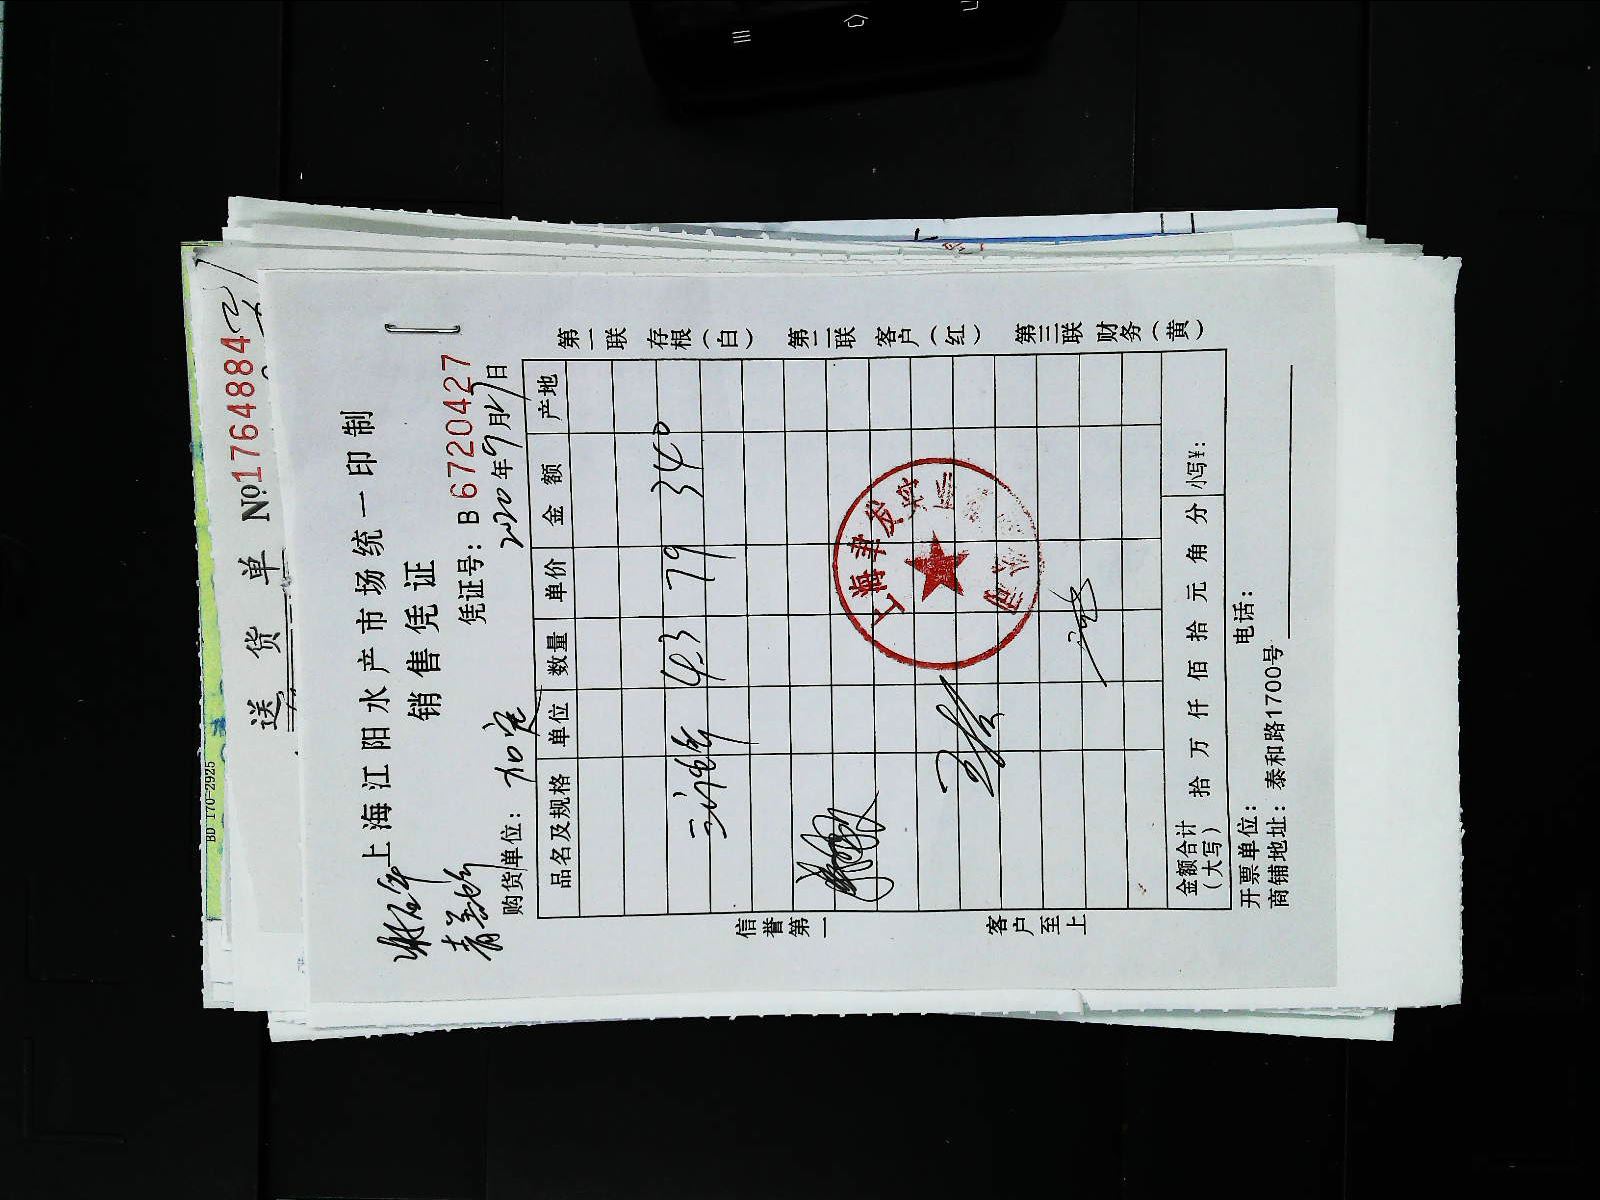 送 货 单 №1764884
BD 170-2925
上海江阳水产市场统一印制
销售凭证
凭证号：B 6720427
购货单位： 2020年9月 日
品名及规格 单位 数量 单价 金额 产地
三 4.3 79 340
金额合计（大写） 拾 万 仟 佰 拾 元 角 分 小写¥：
开票单位： 电话：
商铺地址：泰和路1700号
第一联 存根（白） 第二联 客户（红） 第三联 财务（黄）
信誉第一 客户至上